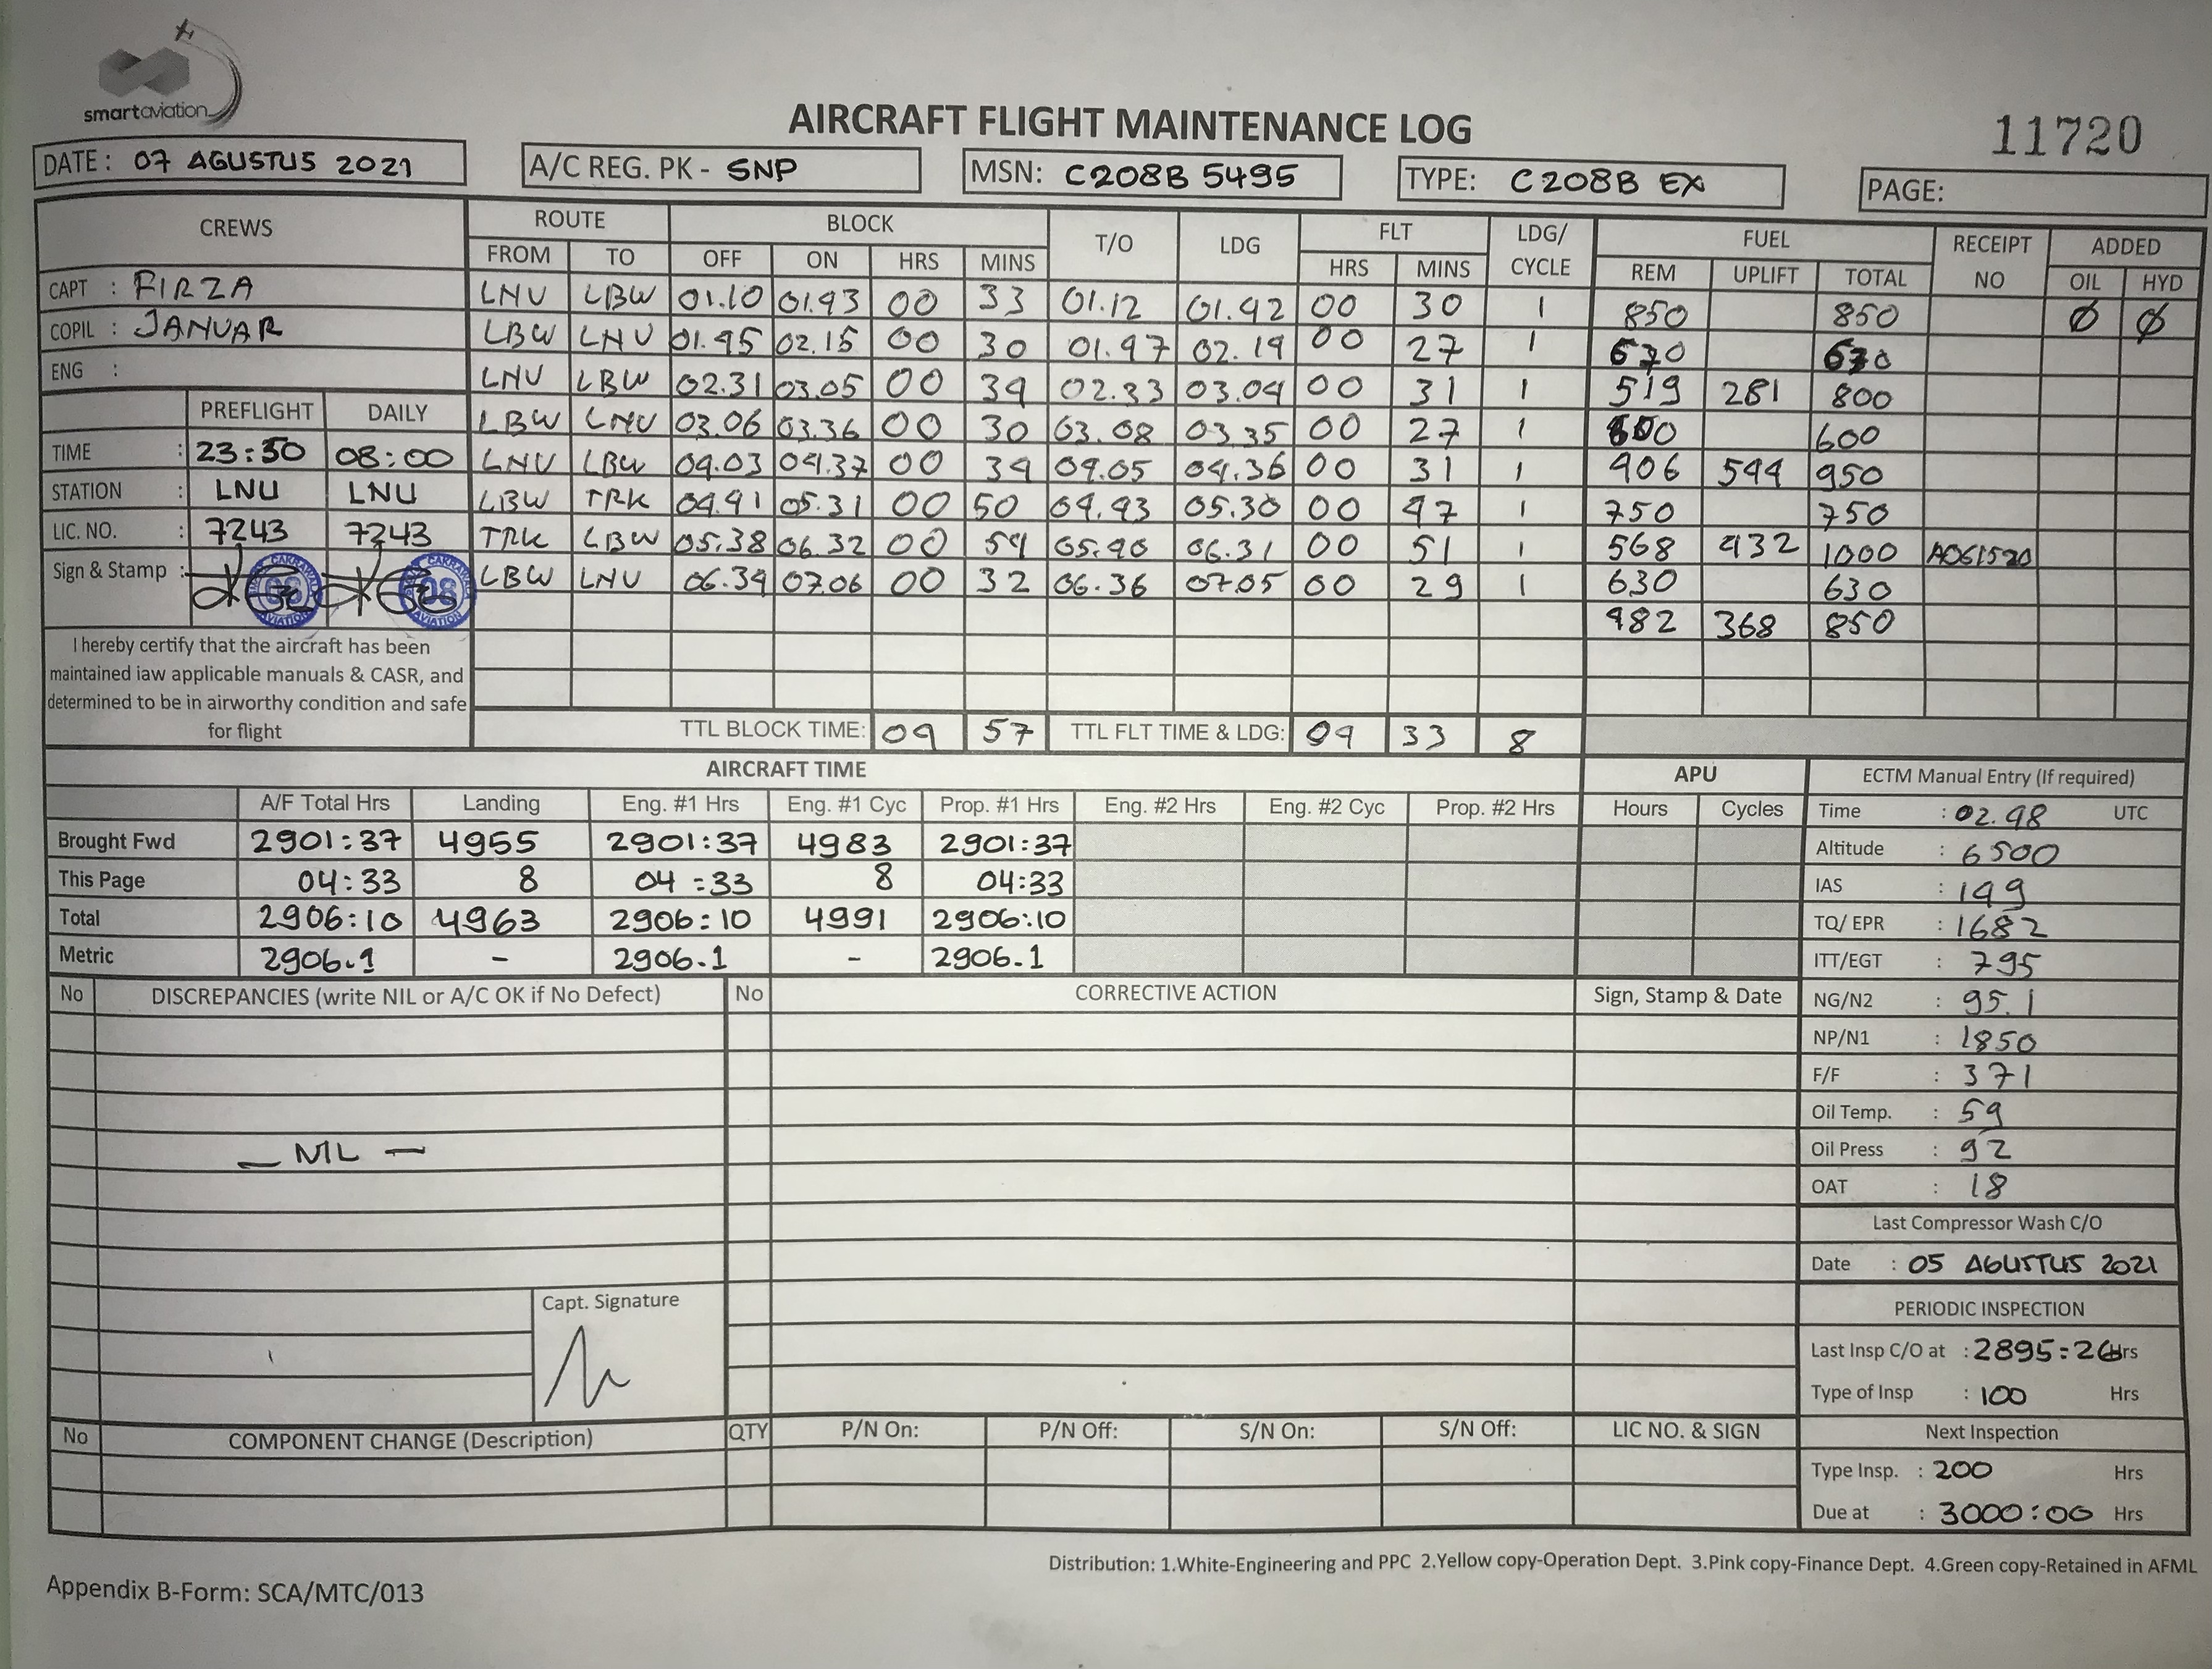 smartaviation
AIRCRAFT FLIGHT MAINTENANCE LOG
11720
DATE : 07 AGUSTUS 2021
A/C REG. PK - SNP
MSN: C208B 5495
TYPE: C208B EX
PAGE:
CREWS
CAPT : FIRZA
COPIL : JANUAR
ENG :
PREFLIGHT DAILY
TIME : 23:50 08:00
STATION : LNU LNU
LIC. NO. : 7243 7243
Sign & Stamp :
CAKRAWALA 08 AVIATION
CAKRAWALA 08 AVIATION
I hereby certify that the aircraft has been
maintained iaw applicable manuals & CASR, and
determined to be in airworthy condition and safe
for flight
ROUTE BLOCK T/O LDG FLT LDG/ CYCLE FUEL RECEIPT NO ADDED
FROM TO OFF ON HRS MINS HRS MINS REM UPLIFT TOTAL OIL HYD
LNU LBW 01.10 01.43 00 33 01.12 01.42 00 30 1 850 850 Ø Ø
LBW LNU 01.45 02.15 00 30 01.47 02.14 00 27 1 670 670
LNU LBW 02.31 03.05 00 34 02.33 03.04 00 31 1 519 281 800
LBW LNU 03.06 03.36 00 30 03.08 03.35 00 27 1 600 600
LNU LBW 04.03 04.37 00 34 04.05 04.36 00 31 1 406 544 950
LBW TRK 04.41 05.31 00 50 04.43 05.30 00 47 1 750 750
TRK LBW 05.38 06.32 00 54 05.40 06.31 00 51 1 568 432 1000 A061520
LBW LNU 06.34 07.06 00 32 06.36 07.05 00 29 1 630 630
482 368 850
TTL BLOCK TIME: 04 57 TTL FLT TIME & LDG: 04 33 8
AIRCRAFT TIME
A/F Total Hrs Landing Eng. #1 Hrs Eng. #1 Cyc Prop. #1 Hrs Eng. #2 Hrs Eng. #2 Cyc Prop. #2 Hrs
Brought Fwd 2901:37 4955 2901:37 4983 2901:37
This Page 04:33 8 04:33 8 04:33
Total 2906:10 4963 2906:10 4991 2906:10
Metric 2906.1 - 2906.1 - 2906.1
APU
Hours Cycles
ECTM Manual Entry (If required)
Time : 02.48 UTC
Altitude : 6500
IAS : 149
TQ/ EPR : 1682
ITT/EGT : 795
NG/N2 : 95.1
NP/N1 : 1850
F/F : 371
Oil Temp. : 59
Oil Press : 92
OAT : 18
Last Compressor Wash C/O
Date : 05 AGUSTUS 2021
PERIODIC INSPECTION
Last Insp C/O at : 2895:26 Hrs
Type of Insp : 100 Hrs
Next Inspection
Type Insp. : 200 Hrs
Due at : 3000:00 Hrs
No DISCREPANCIES (write NIL or A/C OK if No Defect) No CORRECTIVE ACTION Sign, Stamp & Date
— NIL —
Capt. Signature
No COMPONENT CHANGE (Description) QTY P/N On: P/N Off: S/N On: S/N Off: LIC NO. & SIGN
Distribution: 1.White-Engineering and PPC 2.Yellow copy-Operation Dept. 3.Pink copy-Finance Dept. 4.Green copy-Retained in AFML
Appendix B-Form: SCA/MTC/013